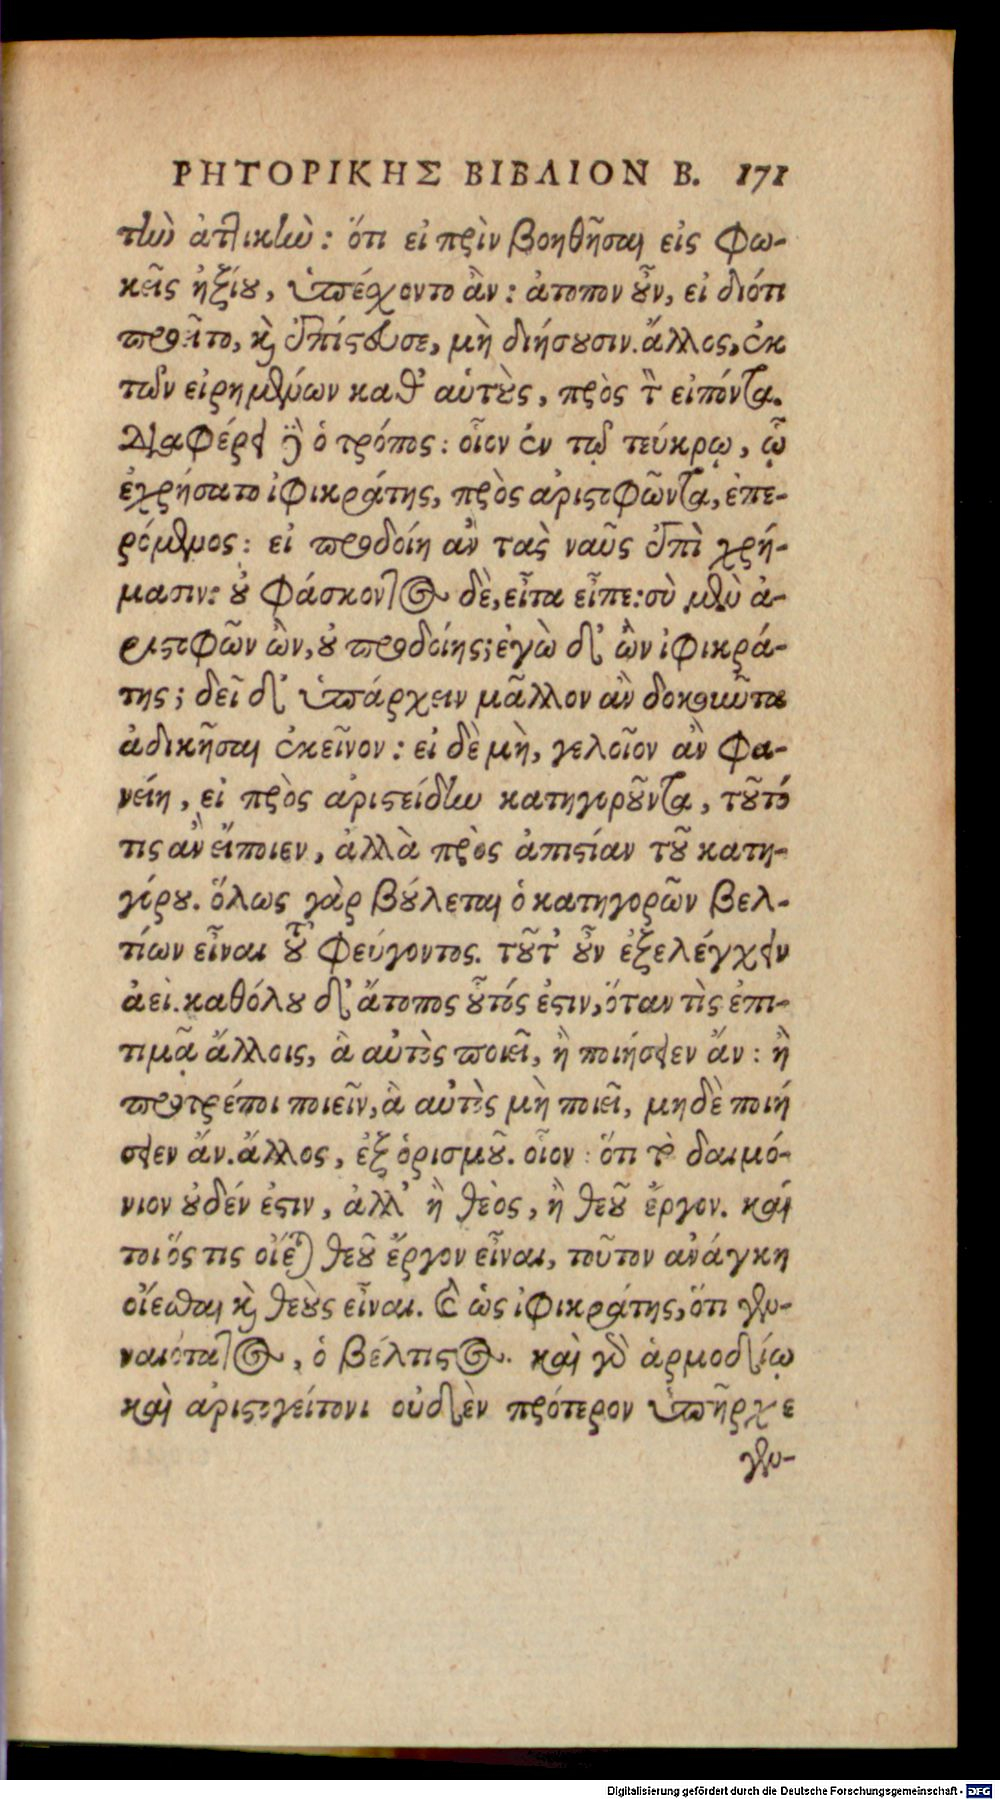 ΡΗΤΟΡΙΚΗΣ ΒΙΒΛΙΟΝ Β. 171
τὴν ἀττικὴν: ὅτι εἰ πρὶν βοηθῆσαι εἰς Φω-
κεῖς ἠξίου, ὑπέσχοντο ἂν: ἄτοπον οὖν, εἰ διότι
προεῖτο, καὶ ἐπίστευσε, μὴ διήσουσιν. ἄλλος, ἐκ
τῶν εἰρημένων καθ' αὑτοὺς, πρὸς τὸν εἰπόντα.
Διαφέρει δὲ ὁ τρόπος: οἷον ἐν τῷ τεύκρῳ, ᾧ
ἐχρήσατο ἰφικράτης, πρὸς ἀριστοφῶντα, ἐπε-
ρόμενος: εἰ προδοίη ἂν τὰς ναῦς ἐπὶ χρή-
μασιν: οὐ φάσκοντος δὲ, εἶτα εἶπε: σὺ μὲν ἀ-
ριστοφῶν ὢν, οὐ προδοίης; ἐγὼ δ' ὢν ἰφικρά-
της; δεῖ δ' ὑπάρχειν μᾶλλον ἂν δοκοῦντα
ἀδικῆσαι ἐκεῖνον: εἰ δὲ μὴ, γελοῖον ἂν φα-
νείη, εἰ πρὸς ἀριστείδην κατηγοροῦντα, τοῦτό
τις ἂν εἴποιεν, ἀλλὰ πρὸς ἀπιστίαν τοῦ κατη-
γόρου. ὅλως γὰρ βούλεται ὁ κατηγορῶν βελ-
τίων εἶναι τοῦ φεύγοντος. τοῦτ' οὖν ἐξελέγχειν
ἀεί. καθόλου δ' ἄτοπος οὗτός ἐστιν, ὅταν τὶς ἐπι-
τιμᾷ ἄλλοις, ἃ αὐτὸς ποιεῖ, ἢ ποιήσειεν ἄν: ἢ
προτρέποι ποιεῖν, ἃ αὐτὸς μὴ ποιεῖ, μηδὲ ποιή
σειεν ἄν. ἄλλος, ἐξ ὁρισμοῦ. οἷον: ὅτι τὸ δαιμό-
νιον οὐδέν ἐστιν, ἀλλ' ἢ θεὸς, ἢ θεοῦ ἔργον. καί
τοι ὅς τις οἴεται θεοῦ ἔργον εἶναι, τοῦτον ἀνάγκη
οἴεσθαι καὶ θεοὺς εἶναι. καὶ ὡς ἰφικράτης, ὅτι γεν-
ναιότατος, ὁ βέλτιστος. καὶ γὰρ ἁρμοδίῳ
καὶ ἀριστογείτονι οὐδὲν πρότερον ὑπῆρχε
γεν-
Digitalisierung gefördert durch die Deutsche Forschungsgemeinschaft - DFG